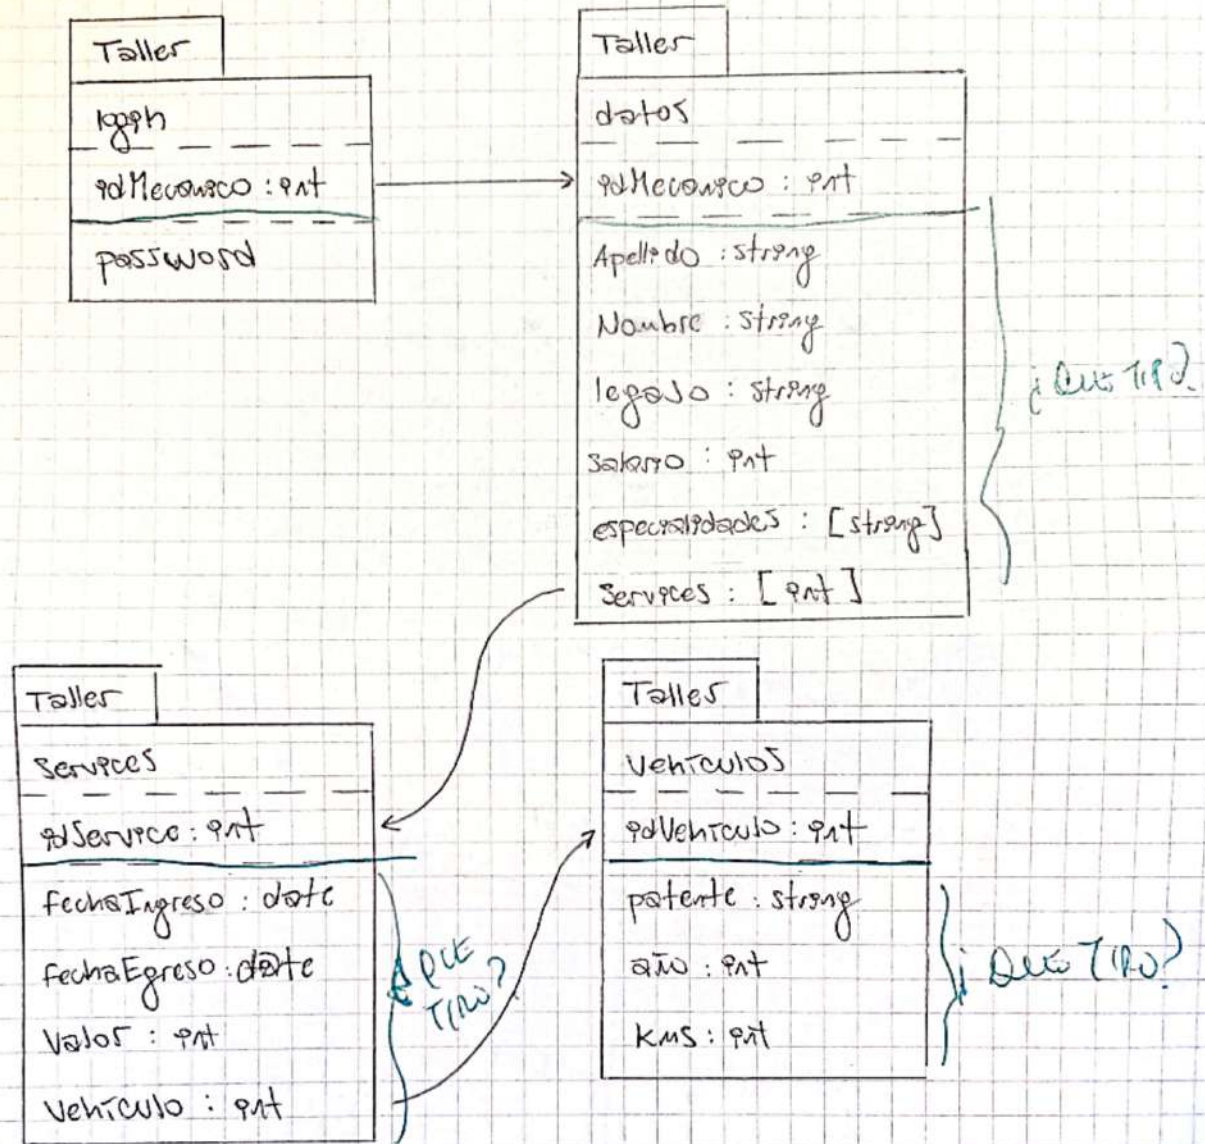 Taller
login
idMecanico : int
password
Taller
datos
idMecanico : int
Apellido : string
Nombre : string
legajo : string
salario : int
especialidades : [string]
services : [int]
¿QUE TIPO?
Taller
services
idService : int
fechaIngreso : date
fechaEgreso : date
valor : int
vehículo : int
¿QUE TIPO?
Taller
vehículos
idVehículo : int
patente : string
año : int
kms : int
¿QUE TIPO?